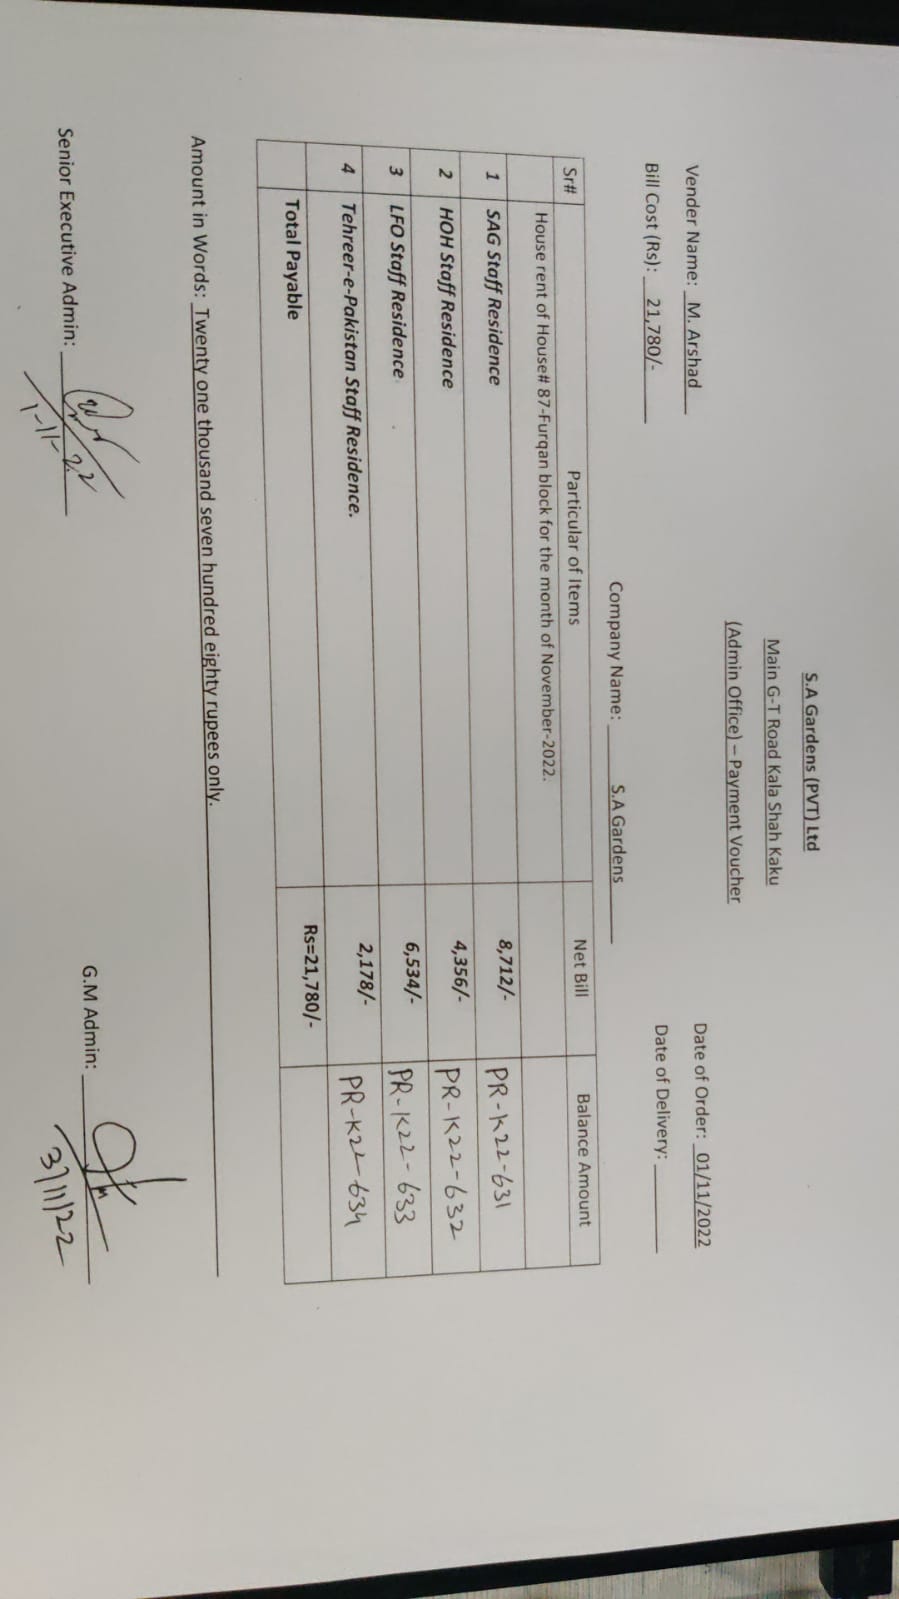 S.A Gardens (PVT) Ltd
Main G-T Road Kala Shah Kaku
(Admin Office) – Payment Voucher
Vender Name: M. Arshad
Date of Order: 01/11/2022
Bill Cost (Rs): 21,780/-
Date of Delivery:
Company Name: S.A Gardens
Sr# Particular of Items Net Bill Balance Amount
House rent of House# 87-Furqan block for the month of November-2022.
1 SAG Staff Residence 8,712/- PR-K22-631
2 HOH Staff Residence 4,356/- PR-K22-632
3 LFO Staff Residence 6,534/- PR-K22-633
4 Tehreer-e-Pakistan Staff Residence. 2,178/- PR-K22-634
Total Payable Rs=21,780/-
Amount in Words: Twenty one thousand seven hundred eighty rupees only.
Senior Executive Admin:
1-11-22
G.M Admin:
3/11/22